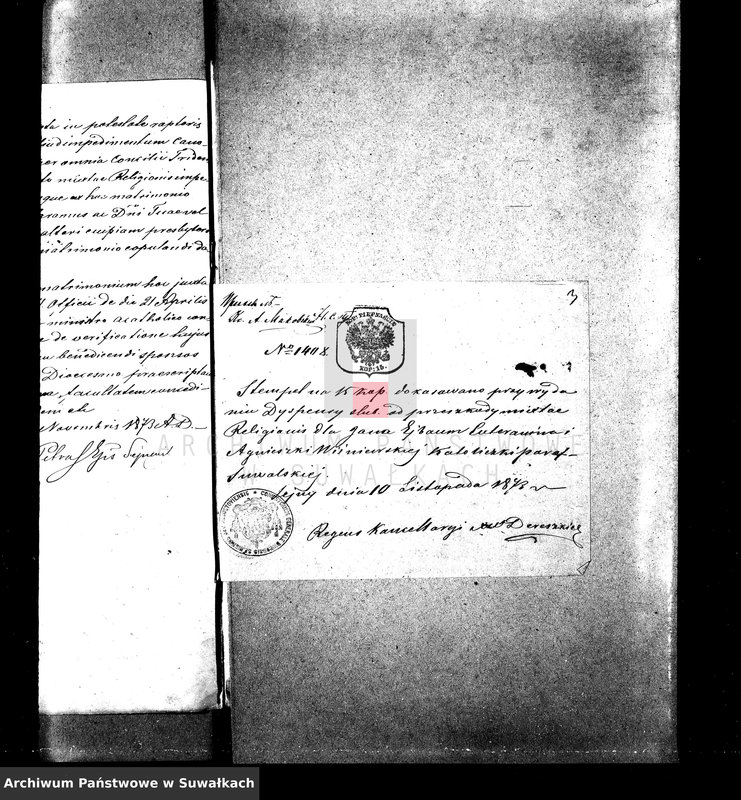 in potestate raptoris
impedimentum Cano
omnia Concilii Triden
mixtae Religionis impe
ex hoc matrimonio
ac Dni Tuae vel
alteri cuipiam presbytero
matrimonio copulandi da
matrimonium hoc juxta
Officii de die 21 Aprilis
ministro acatholico
de verificatione hujus
benedicendi sponsos
Dioecesano praescriptam
facultatem concedi
Novembris 1873 A. D.
Petrus
3
Ks. A.
No 1408.
КОП: 15.
Stempel na 15 kop. dokasowano przy wyda
niu Dyspensy od przeszkody mixtae
Religionis dla Jana Luteranina i
Agnieszki Wiśniewskiej Katoliczki paraf
Suwalskiej
Sejny dnia 10 Listopada 1873
Regens Kancellaryi Dereszkie
ARCHIWUM PAŃSTWOWE
W SUWAŁKACH
Archiwum Państwowe w Suwałkach